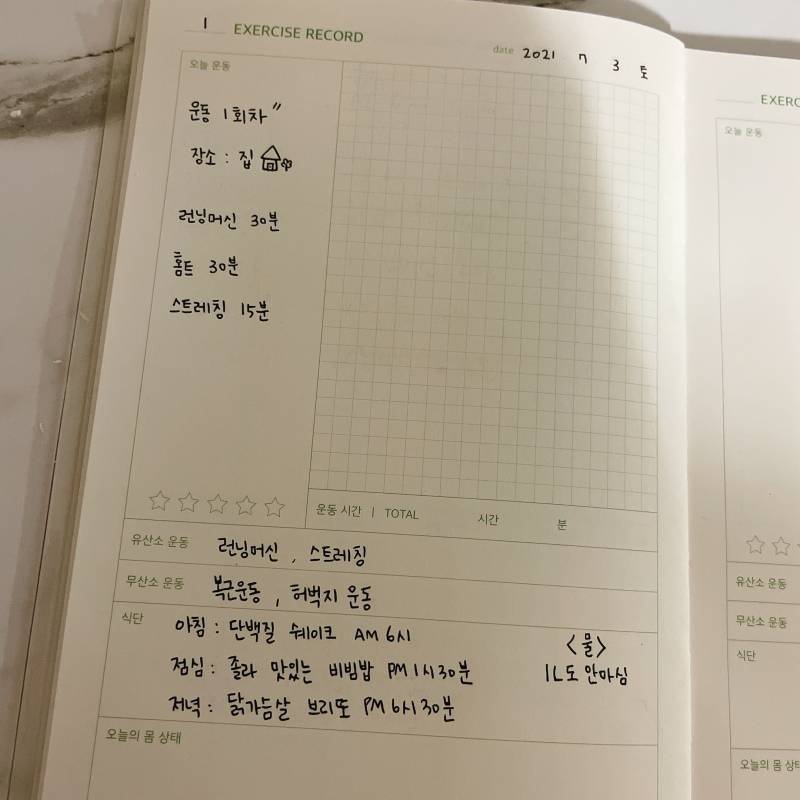 1 EXERCISE RECORD
date 2021 7 3 토
오늘 운동
운동 1회차"
장소 : 집
런닝머신 30분
홈트 30분
스트레칭 15분
운동 시간 | TOTAL 시간 분
유산소 운동 런닝머신 , 스트레칭
무산소 운동 복근운동 , 허벅지 운동
식단
아침 : 단백질 쉐이크 AM 6시
점심 : 졸라 맛있는 비빔밥 PM 1시 30분
저녁 : 닭가슴살 브리또 PM 6시 30분
<물>
1L도 안마심
오늘의 몸 상태
EXERC
오늘 운동
유산소 운동
무산소 운동
식단
오늘의 몸 상태